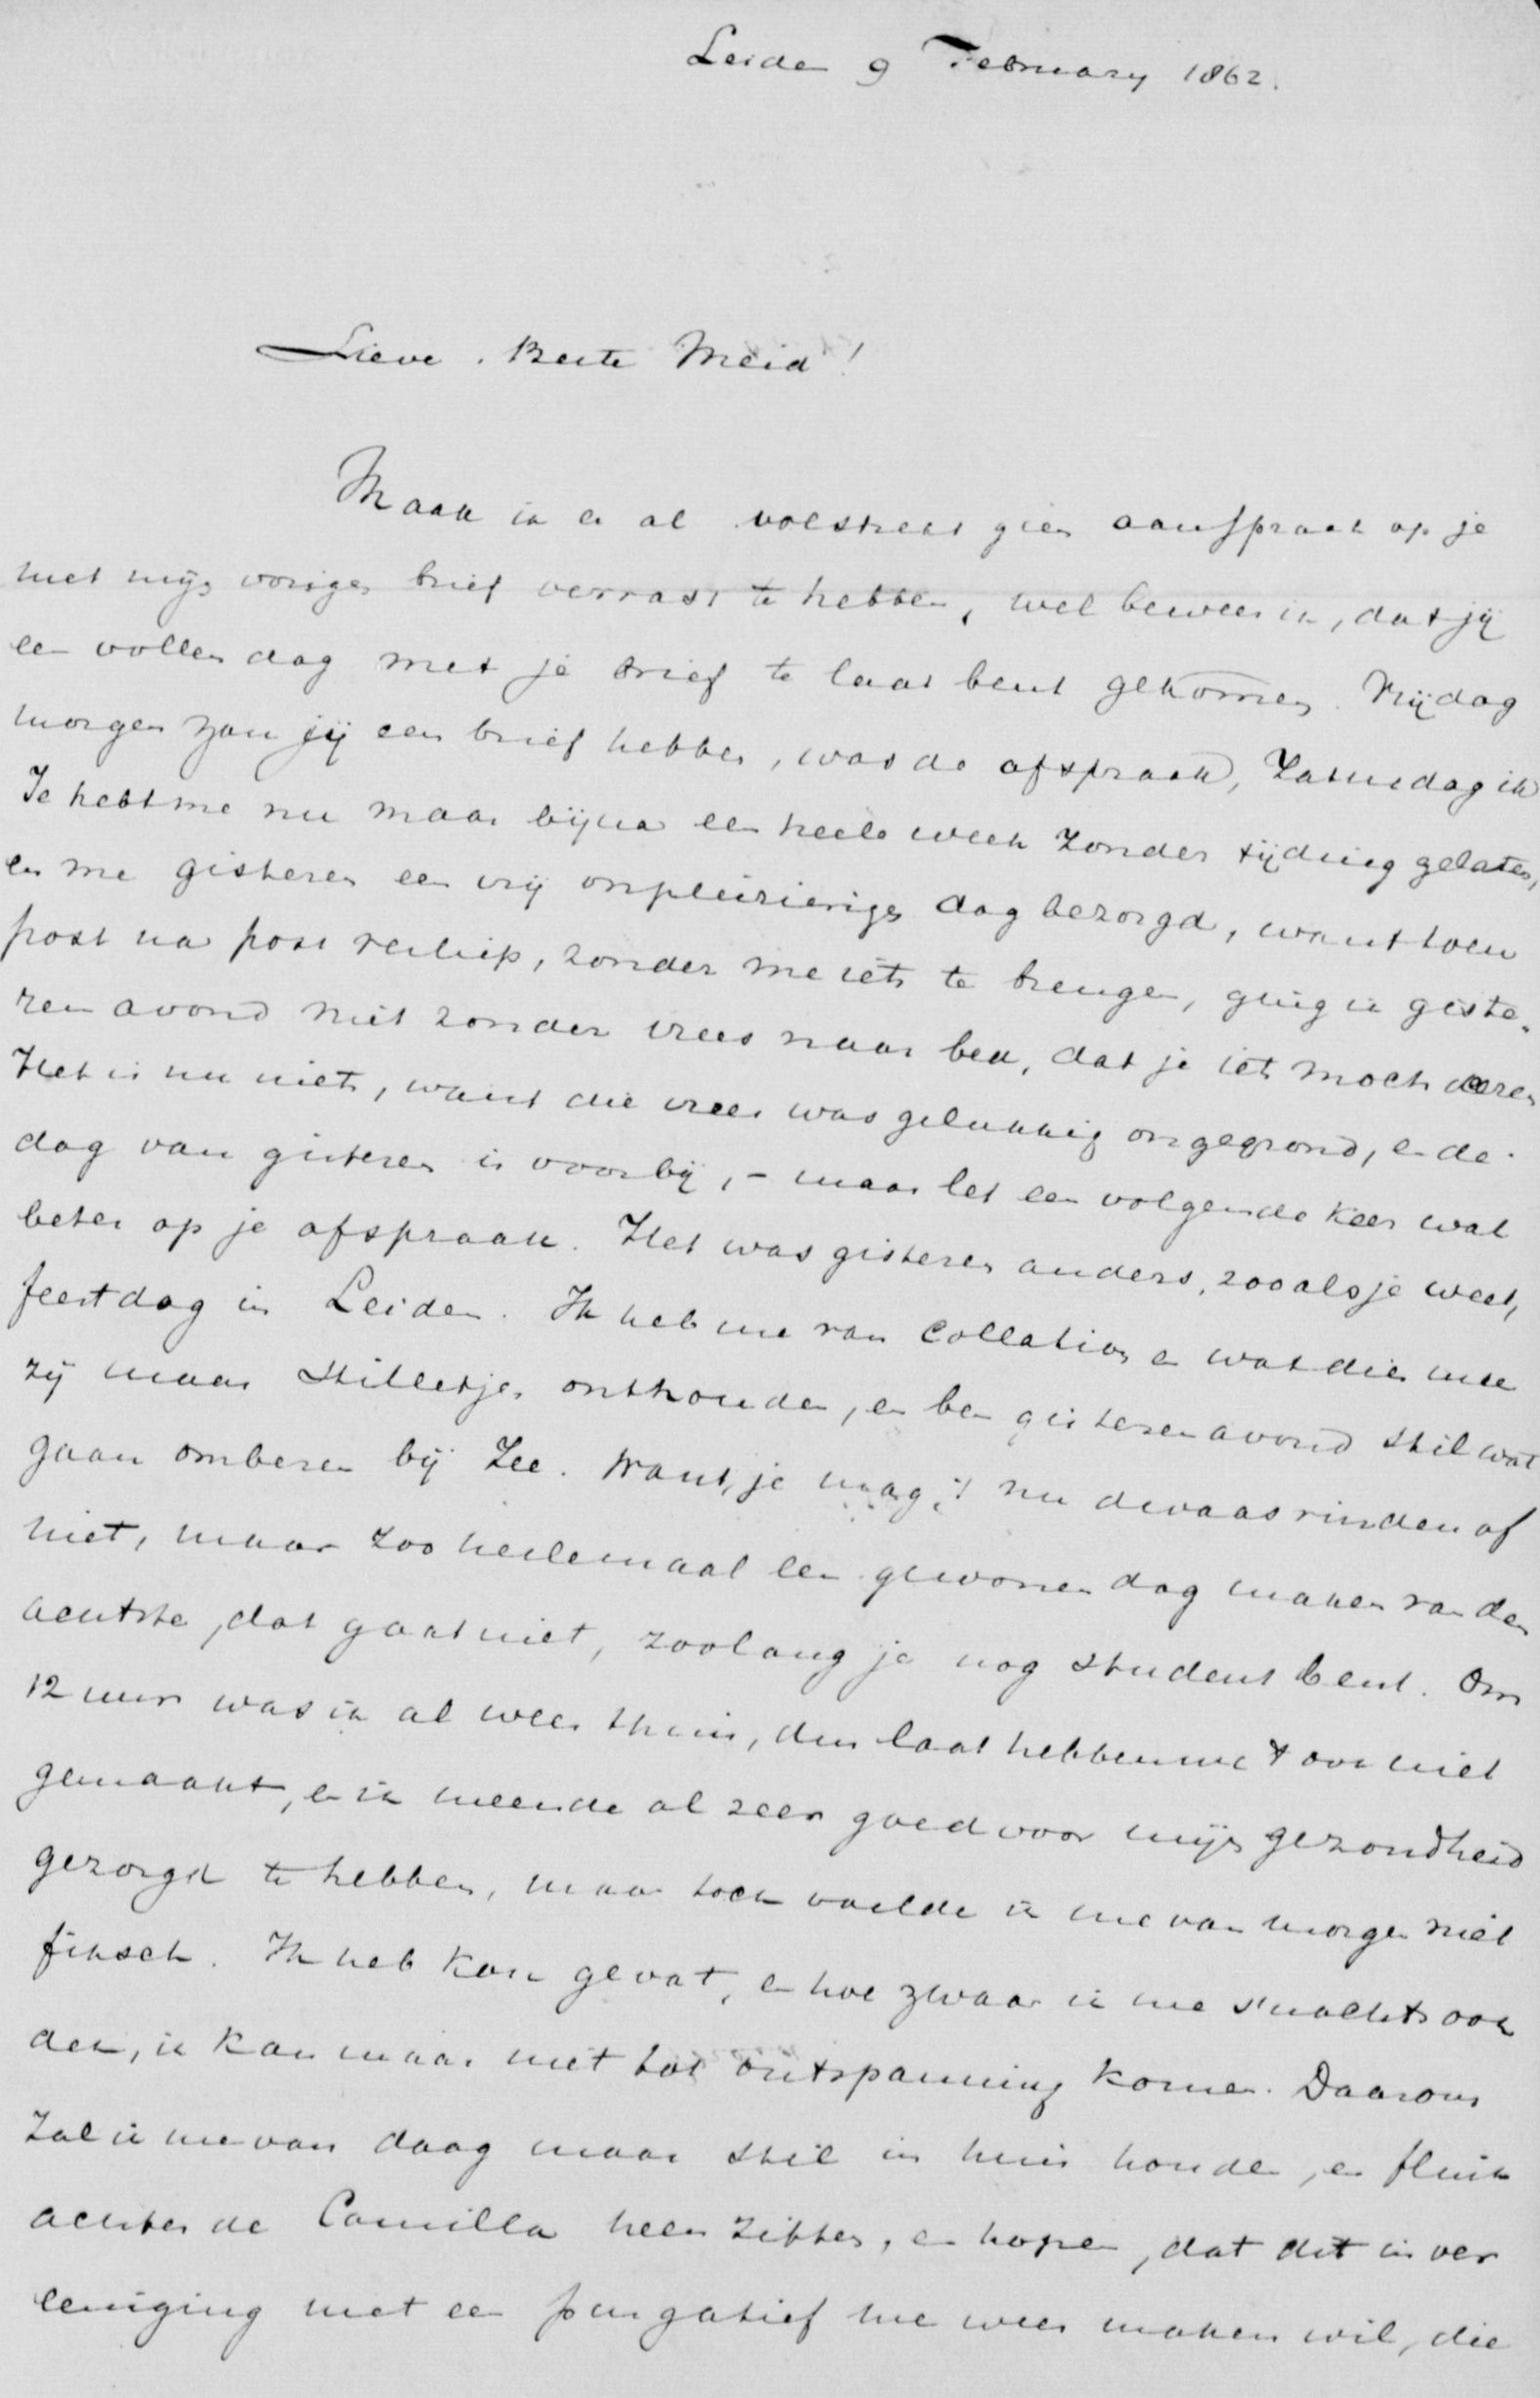 Leiden 9 February 1862.
Lieve, Beste Meid!
Maak ik er al volstrekt geen aanspraak op je
met mijn vorigen brief verrast te hebben, wel beweer ik, dat jij
een vollen dag met je brief te laat bent gekomen. Vrijdag
morgen zou jij een brief hebben, was de afspraak, Zaturdag ik
Je hebt me nu maar bijna een heele week zonder tijding gelaten,
en me gisteren een vrij onpleizierigen dag bezorgd, want toen
post na post verliep, zonder me iets te brengen, ging ik giste-
ren avond niet zonder vrees naar bed, dat je iets mocht deren
Het is nu niets, want die vrees was gelukkig ongegrond, en de
dag van gisteren is voorbij, - maar let een volgende keer wat
beter op je afspraak. Het was gisteren anders, zooals je weet,
feestdag in Leiden. Ik heb me van collation en wat dies mee
zij maar stilletjes onthouden, en ben gisteren avond stil wat
gaan omberen bij Zee. Want, je mag 't nu dwaas vinden of
niet, maar zoo heelemaal een gewonen dag maken van den
achtste, dat gaat niet, zoolang je nog student bent. Om
12 uur was ik al weer thuis, dus laat hebben we 't ook niet
gemaakt, en ik meende al zeer goed voor mijn gezondheid
gezorgd te hebben, maar toch voelde ik me van morgen niet
fiksch. Ik heb kou gevat, en hoe zwaar ik me s'nachts ook
dek, ik kan maar niet tot ontspanning komen. Daarom
zal ik me van daag maar stil in huis houden, en fluik
achter de Camilla heen zitten, en hopen, dat dit in ver
eeniging met een purgatief me weer maken wil, die